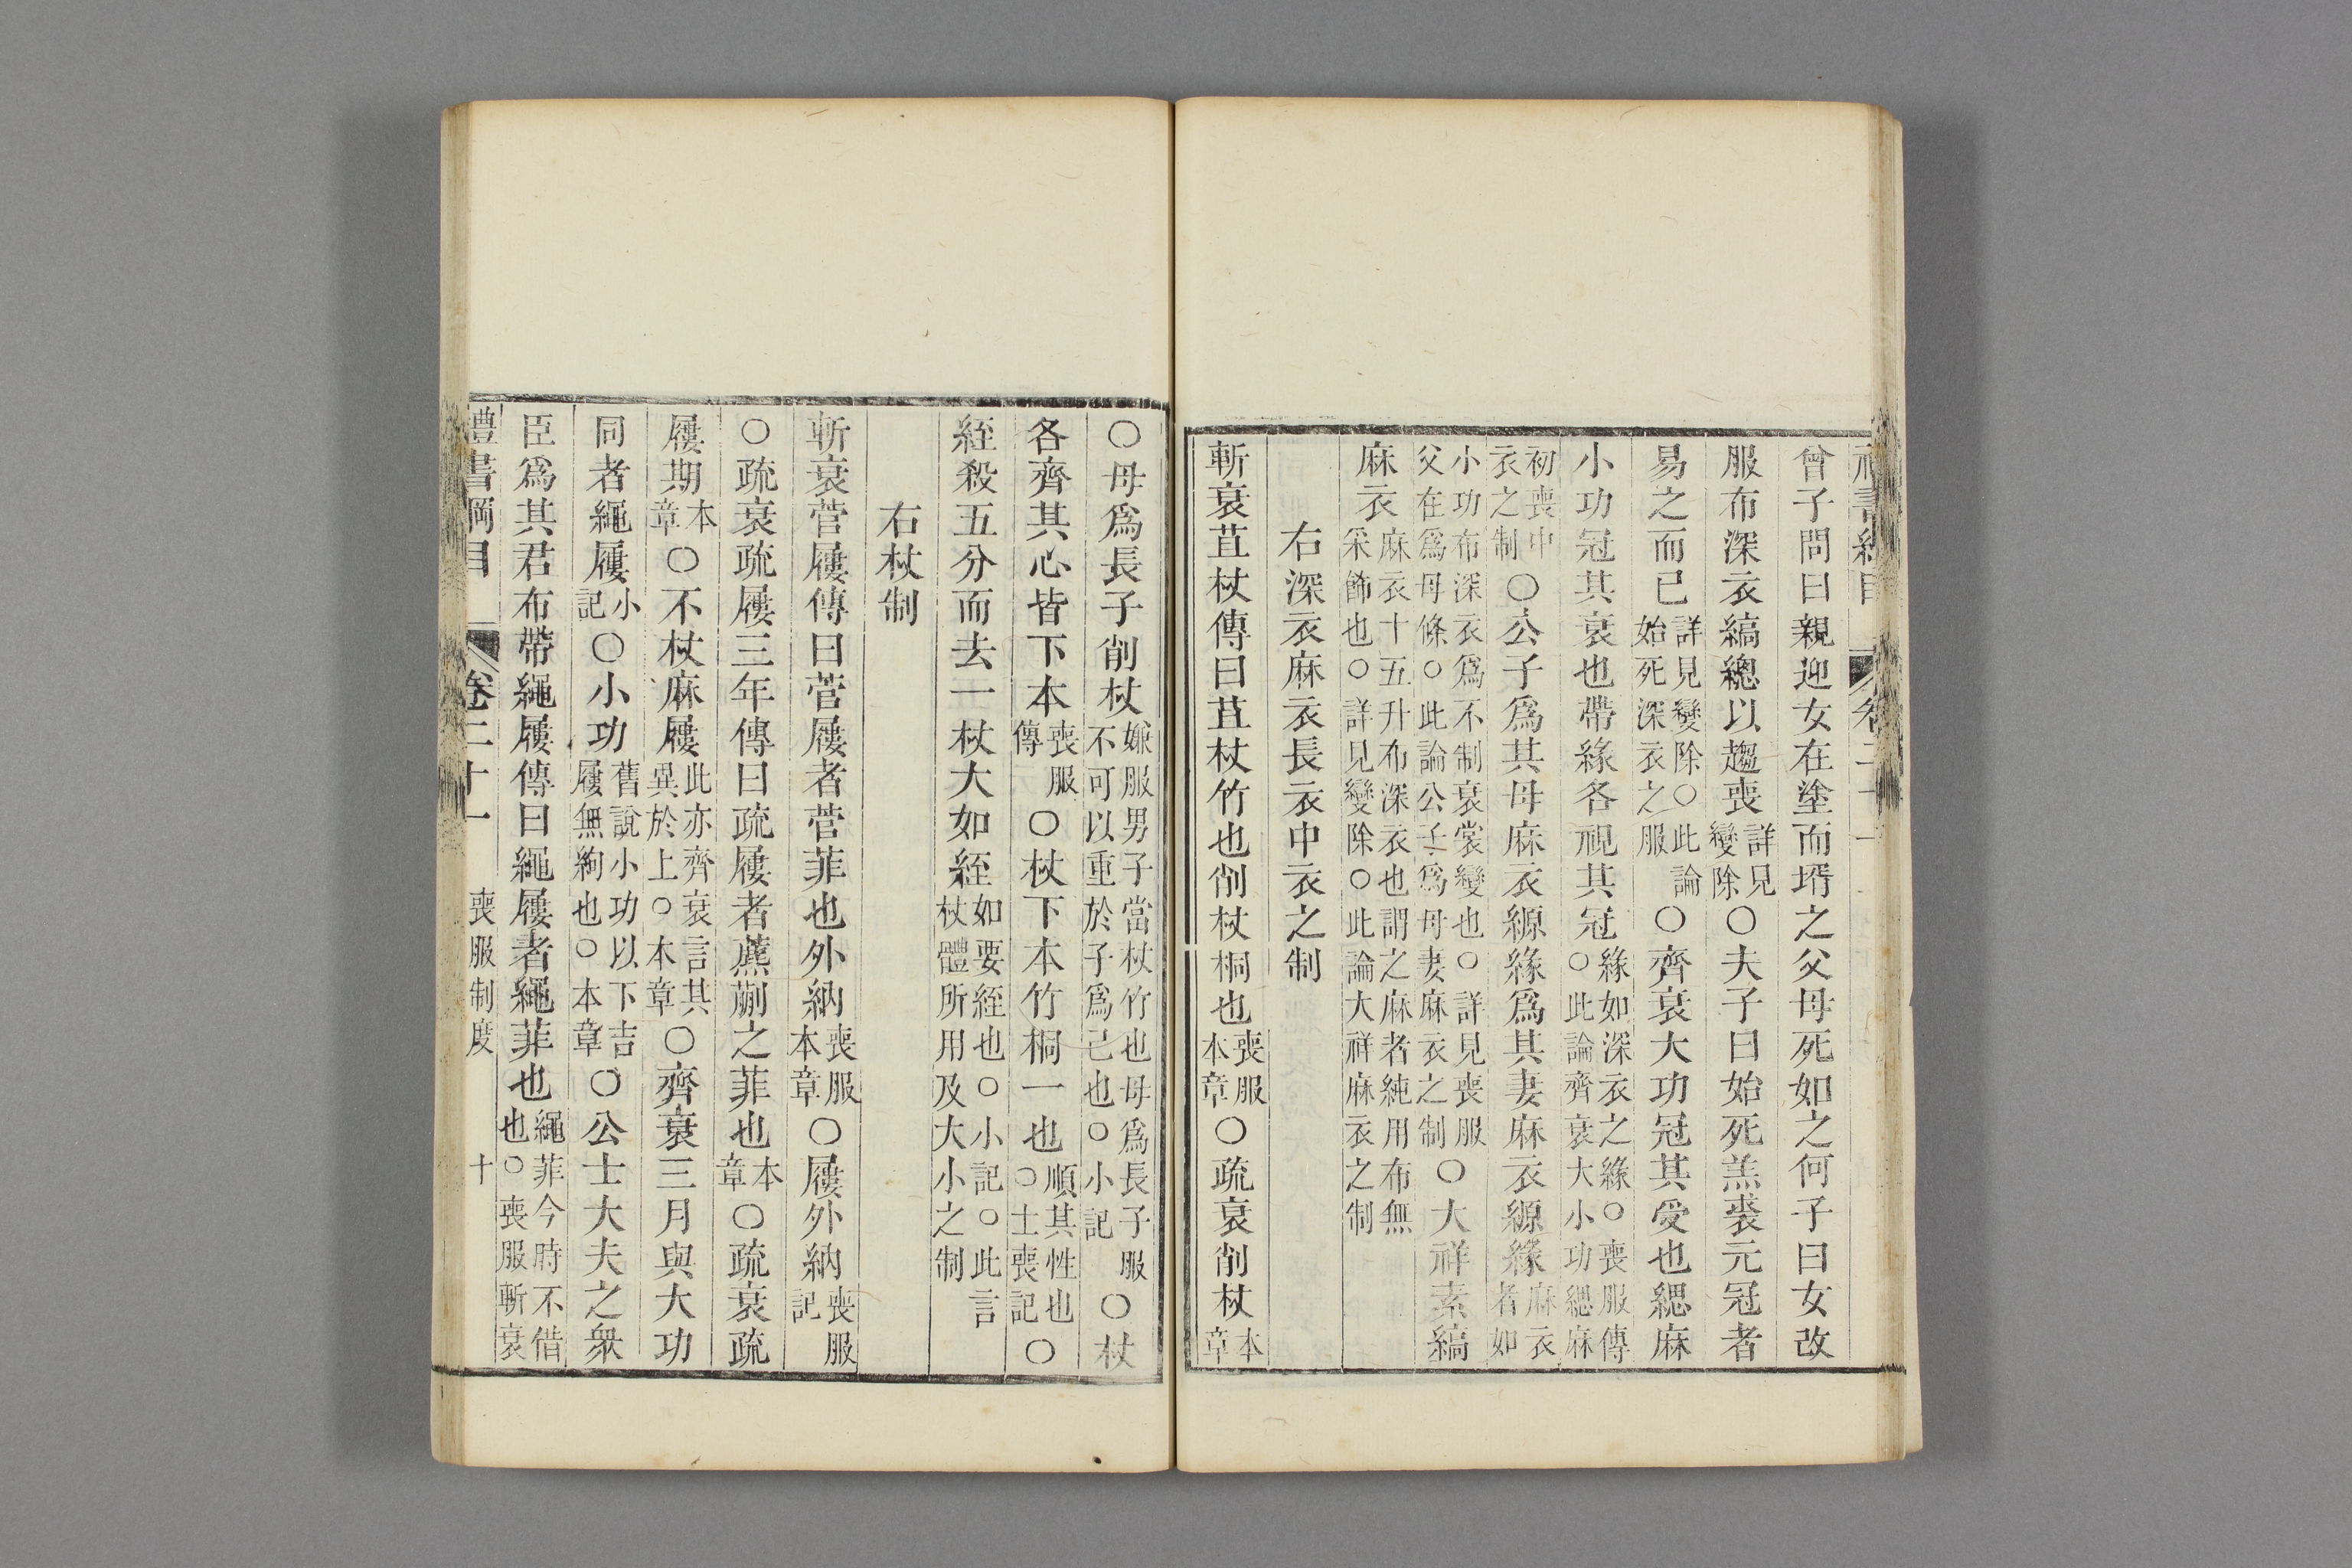 曾子問曰親迎女在塗而壻之父母死如之何子曰女改
服布深衣縞總以趨喪詳見變除〇夫子曰始死羔裘元冠者
易之而已詳見變除〇此論始死深衣之服〇齊衰大功冠其受也緦麻
小功冠其衰也帶緣各視其冠緣如深衣之緣〇喪服傳〇此論齊衰大小功緦麻
初喪中衣之制〇公子爲其母麻衣縓緣爲其妻麻衣縓緣麻衣者如
小功布深衣爲不制衰裳變也〇詳見喪服父在爲母條〇此論公子爲母妻麻衣之制〇大祥素縞
麻衣麻衣十五升布深衣也謂之麻者純用布無采飾也〇詳見變除〇此論大祥麻衣之制
右深衣麻衣長衣中衣之制
斬衰苴杖傳曰苴杖竹也削杖桐也喪服本章〇疏衰削杖本章
〇母爲長子削杖嫌服男子當杖竹也母爲長子服不可以重於子爲己也〇小記〇杖
各齊其心皆下本喪服傳〇杖下本竹桐一也順其性也〇士喪記〇
絰殺五分而去一杖大如絰如要絰也〇小記〇此言杖體所用及大小之制
右杖制
斬衰菅屨傳曰菅屨者菅菲也外納喪服本章〇屨外納喪服記
〇疏衰疏屨三年傳曰疏屨者藨蒯之菲也本章〇疏衰疏
屨期本章〇不杖麻屨此亦齊衰言其異於上〇本章〇齊衰三月與大功
同者繩屨小記〇小功舊說小功以下吉屨無絇也〇本章〇公士大夫之衆
臣爲其君布帶繩屨傳曰繩屨者繩菲也繩菲今時不借也〇喪服斬衰
禮書綱目 卷二十一 喪服制度 十